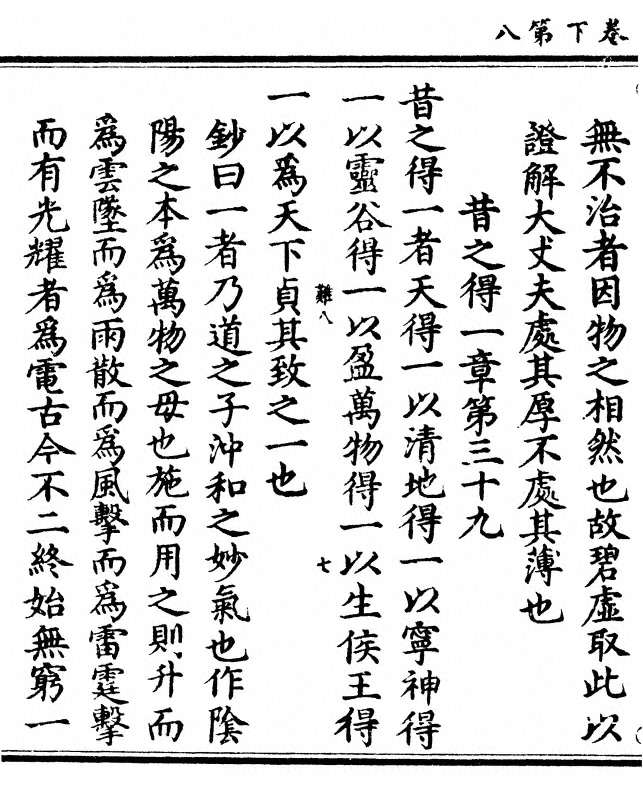 卷下第八
無不治者因物之相然也故碧虛取此以
證解大丈夫處其厚不處其薄也
昔之得一章第三十九
昔之得一者天得一以清地得一以寧神得
一以靈谷得一以盈萬物得一以生侯王得
難八
七
一以為天下貞其致之一也
鈔曰一者乃道之子沖和之妙氣也作陰
陽之本為萬物之母也施而用之則升而
為雲墜而為雨散而為風擊而為雷霆擊
而有光耀者為電古今不二終始無窮一